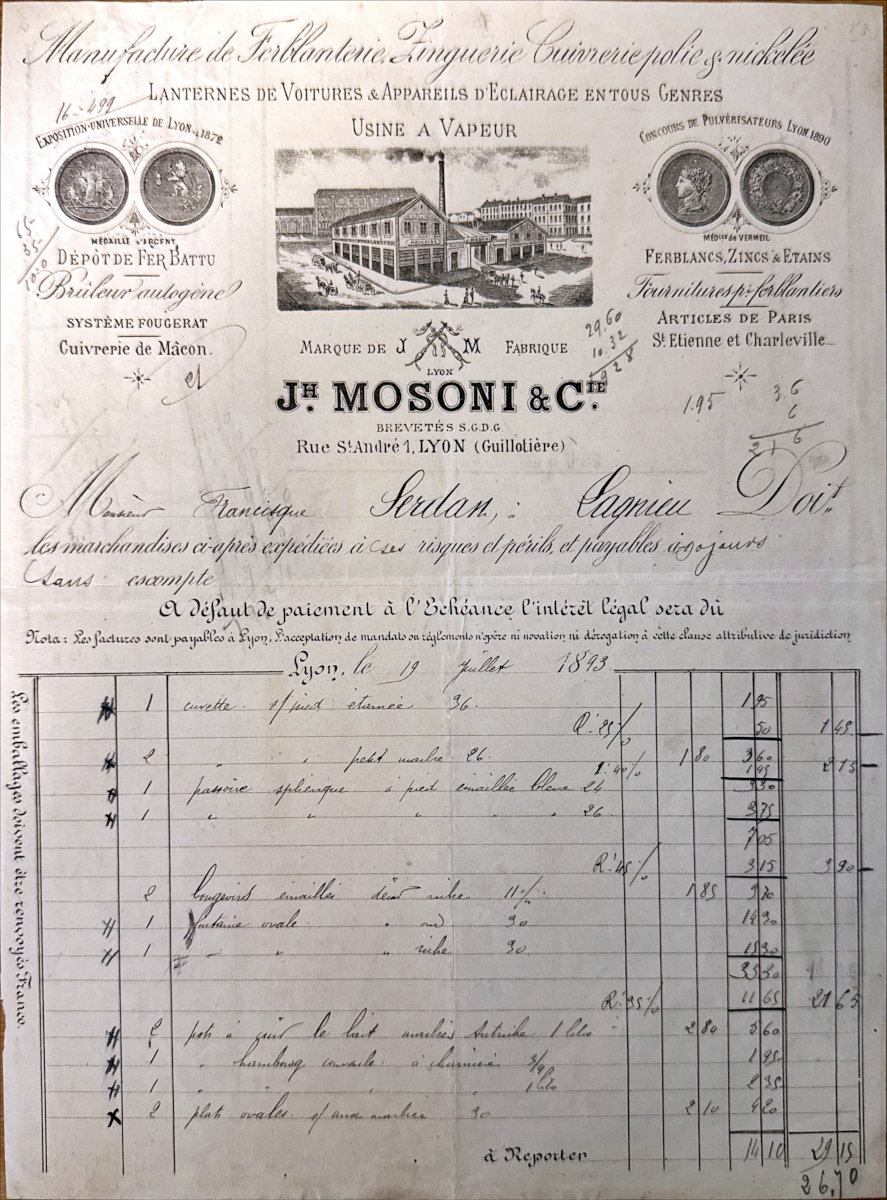 Manufacture de Ferblanterie, Zinguerie Cuivrerie polie & nickelée
LANTERNES DE VOITURES & APPAREILS D'ECLAIRAGE EN TOUS GENRES
16-499
USINE A VAPEUR
EXPOSITION-UNIVERSELLE DE LYON 1872
MÉDAILLE D'ARGENT
DÉPÔT DE FER BATTU
Brûleur autogène
SYSTÈME FOUGERAT
Cuivrerie de Mâcon.
65
35
CONCOURS DE PULVÉRISATEURS LYON 1890
MÉDLLE de VERMEIL
FERBLANCS, ZINCS & ETAINS
Fournitures pr. ferblantiers
ARTICLES DE PARIS
St. Etienne et Charleville
MARQUE DE J M FABRIQUE
LYON
29.60
10.32
19 28
1.95
3.6
6
21 6
JH. MOSONI & CIE.
BREVETÉS S.G.D.G
Rue St. André 1, LYON (Guillotière)
Monsieur Francisque Serdan, à Lagnieu Doit
les marchandises ci-après expédiées à ses risques et périls, et payables à 90 jours
sans escompte
A défaut de paiement à l'Echéance l'intérêt légal sera dû
Nota: Les factures sont payables à Lyon, L'acceptation de mandats ou réglements n'opère ni novation ni dérogation à cette clause attributive de juridiction
Lyon, le 19 Juillet 1893
Les emballages doivent être renvoyés Franco.
1 cuvette s/pied étamée 36. 1 95
R. 25% 50 1 45
2 " " petit marbre 26. 1 80 3 60
R. 40% 1 45 2 15
1 passoire sphérique à pied émaillée bleue 24 3 30
1 " " " " " 26 3 75
7 05
R. 45% 3 15 3 90
2 bougeoirs émaillés décor riche 11 % 1 85 3 70
1 fontaine ovale " 30 14 30
1 " " " riche 30 15 30
33 30
R. 35% 11 65 21 65
2 pots à le lait marbrés Autriche 1 litre 2 80 5 60
1 " hambourg à charnière 3/4 1 95
1 " " " 1 litre 2 35
2 plats ovales s/ anse marbrée 30 2 10 4 20
à Reporter 14 10 29 15
26,70